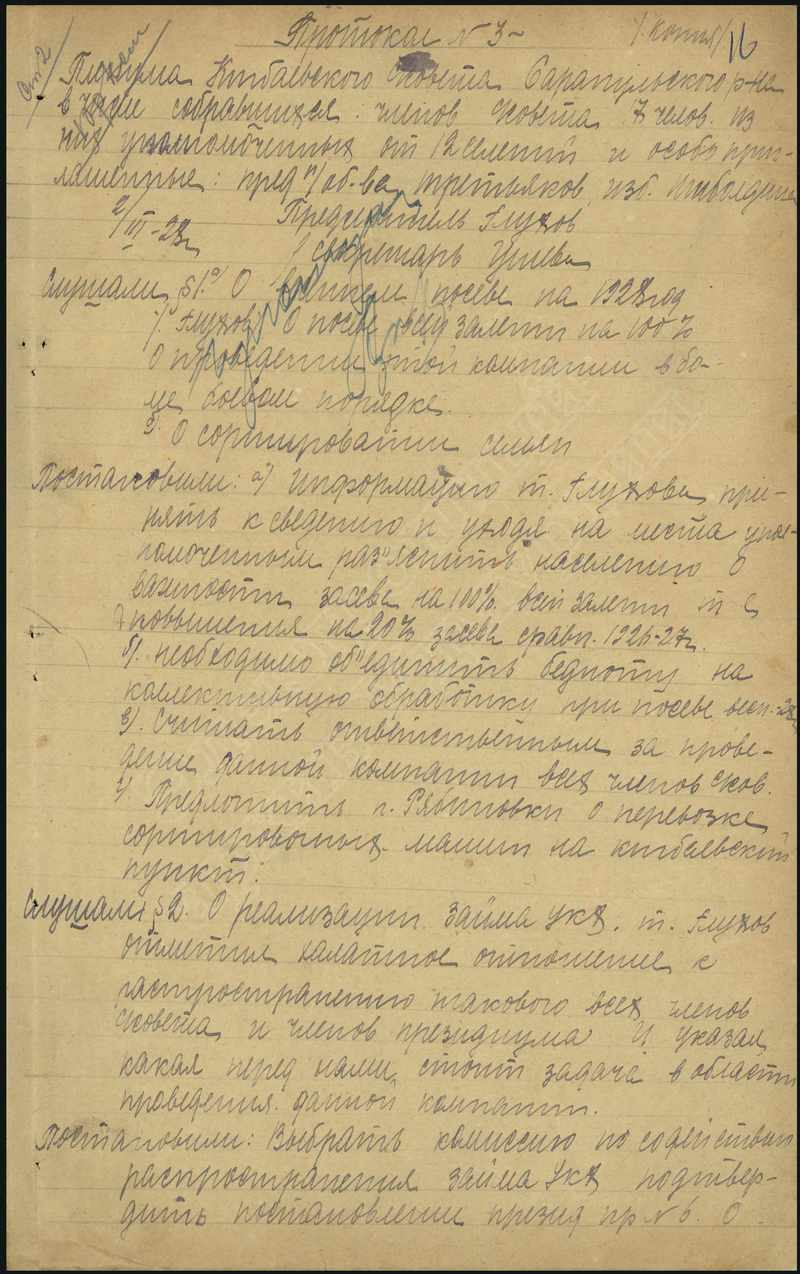 Протокол N 3
/Копия/ 16
Пленума Кигбаевского Совета Сарапульского р-на
в числе собравшихся членов Совета 7 челов. из
них уполномоченных от 12 селений и особо приг-
лашенные: пред п/об-ва Третьяков, изб.
2/III-28 г. Председатель Глухов
Секретарь
Слушали §1. О посеве на 1928 год
1/. Глухов О посеве всей залепи на 100%
О проведении этой компании в бо-
ле боевом порядке.
3. О сортировании семян
Постановили: а) Информацию т. Глухова при-
нять к сведению и уходя на места упол-
номоченным раз"яснить населению о
важности засева на 100% всей залепи и с
повышения на 20% засева сравн. 1926-27 г.
б/. необходимо об"единить бедноту на
коллективную обработку при посеве весн. 28 г.
3). Считать ответственным за прове-
дение данной компании всех членов Сов.
4) Предложить г. Рябиновки о перевозке
сортировочных машин на кигбаевский
пункт.
Слушали §2. О реализации займа УКХ. т. Глухов
отметил халатное отношение к
распространению такового всех членов
Совета и членов президиума и указал,
какая перед нами стоит задача в области
проведения данной компании.
Постановили: Выбрать комиссию по содействию
распространения займа УКХ подтвер-
дить постановлении презид пр N 6. О